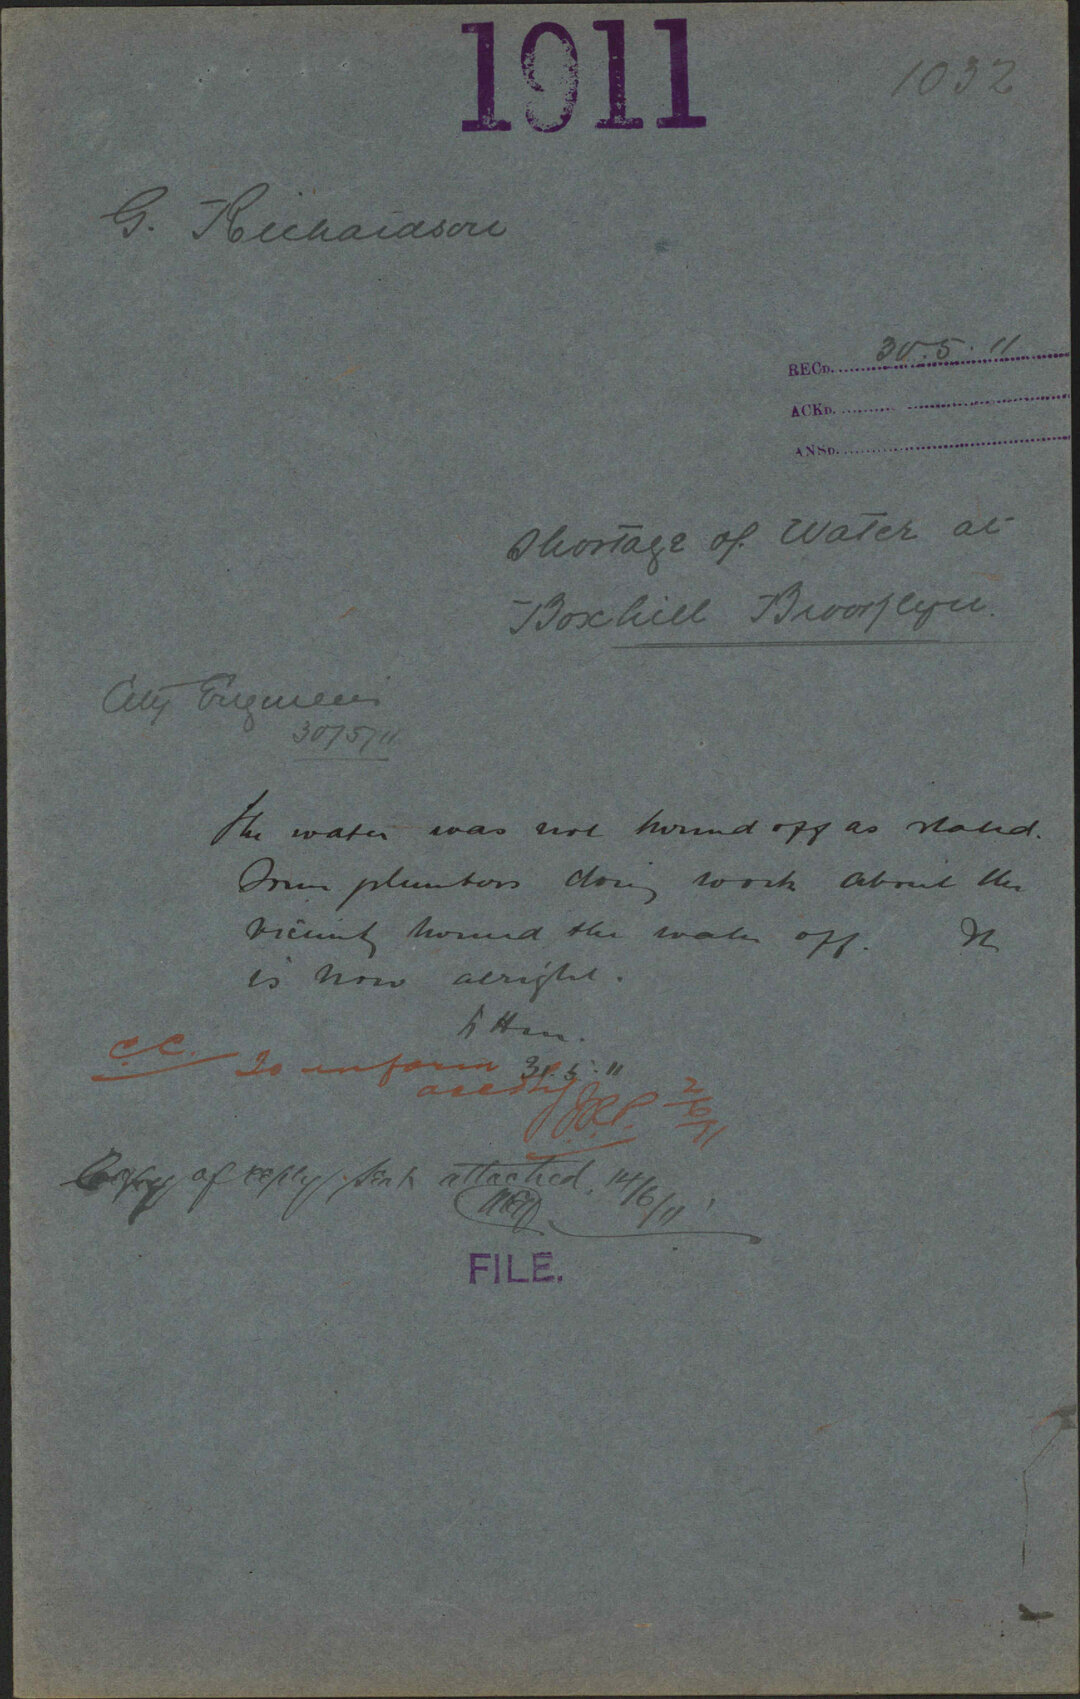 1911
1032
G. Richardson
RECD. 30.5.11
ACKD.
ANSD.
Shortage of Water at
Boxhill Brooklyn.
City Engineer
30/5/11
The water was not turned off as stated.
Some plumbers doing work about the
vicinity turned the water off. It
is now alright.
31.5.11
C.C. To inform
accdly 2/6/11
Copy of reply sent attached. 14/6/11
FILE.